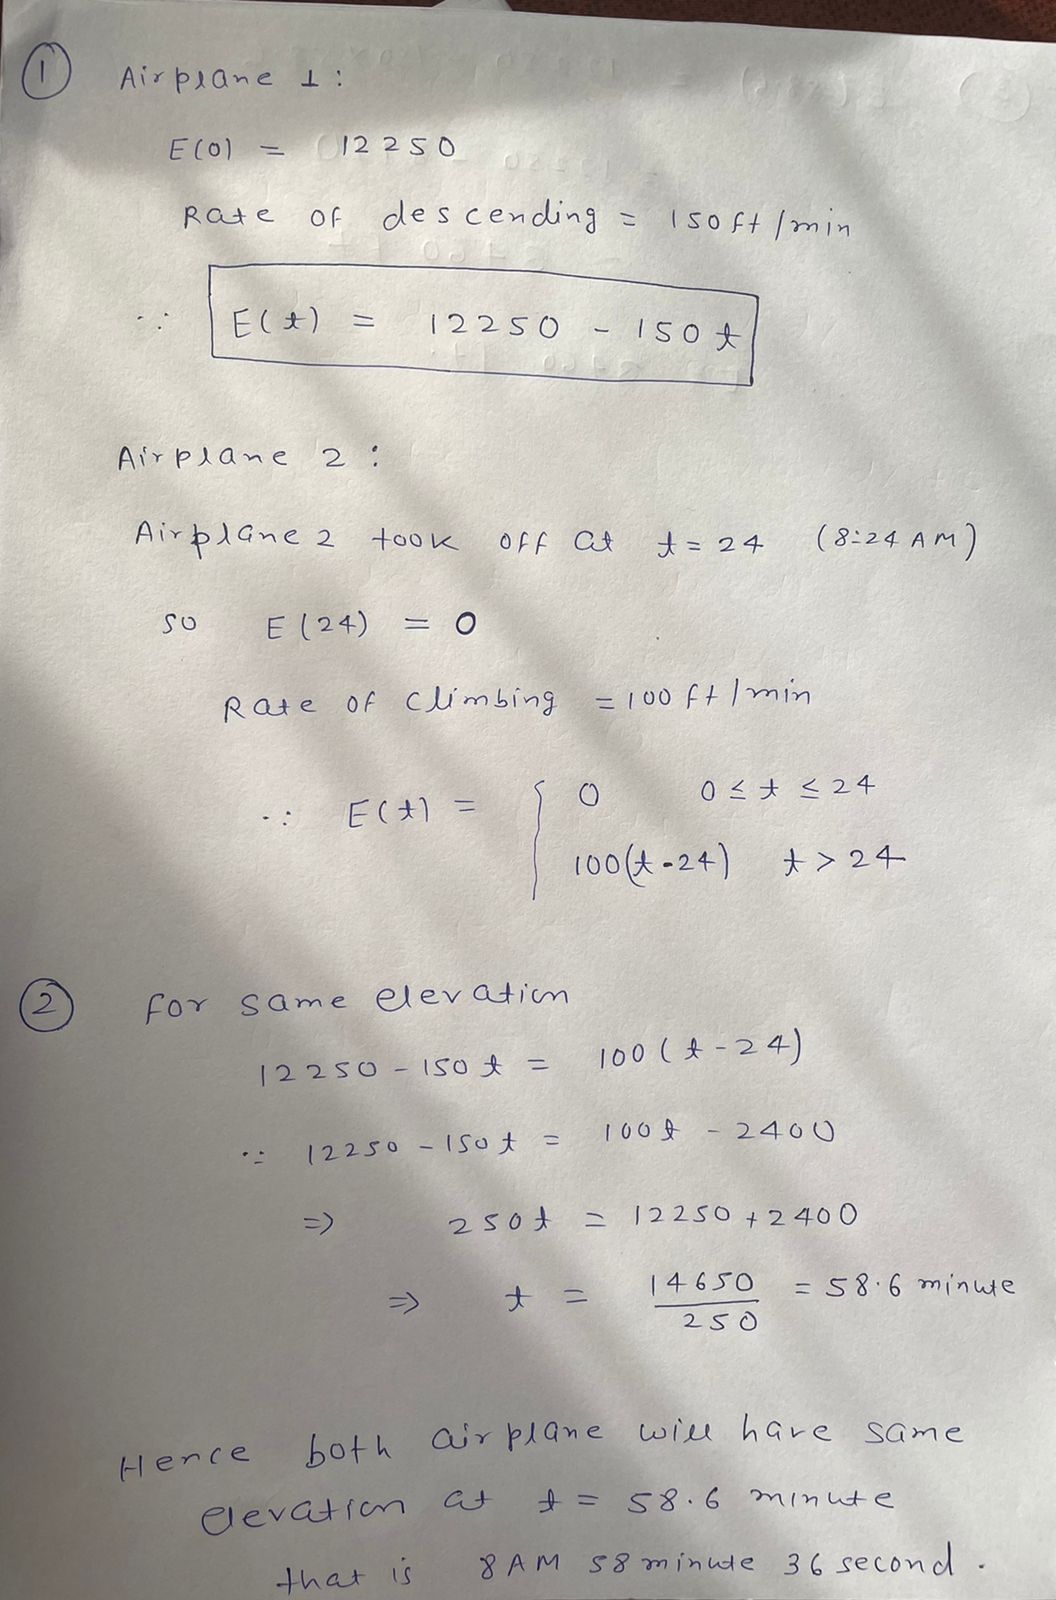 1 Airplane 1:
E(0) = 12250
Rate of descending = 150 ft/min
∴ E(t) = 12250 - 150t
Airplane 2:
Airplane 2 took off at t = 24 (8:24 AM)
so E(24) = 0
Rate of climbing = 100 ft/min
∴ E(t) = { 0 0 ≤ t ≤ 24
100(t-24) t > 24
2 for same elevation
12250 - 150t = 100(t-24)
∴ 12250 - 150t = 100t - 2400
⇒ 250t = 12250 + 2400
⇒ t = 14650/250 = 58.6 minute
Hence both airplane will have same
elevation at t = 58.6 minute
that is 8 AM 58 minute 36 second.